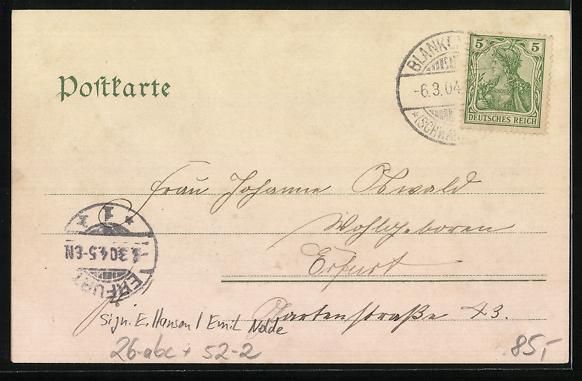 Postkarte
BLANKEN
-6.3.04
*(SCHWA
5 5
DEUTSCHES REICH
Frau Johanne Oswald
Wohlgeboren
Erfurt
Gartenstraße 43.
* 1 *
.3.04.5-6N
ERFURT
Sign. E. Hansen / Emil Nolde
26-abc + 52-2
85,-